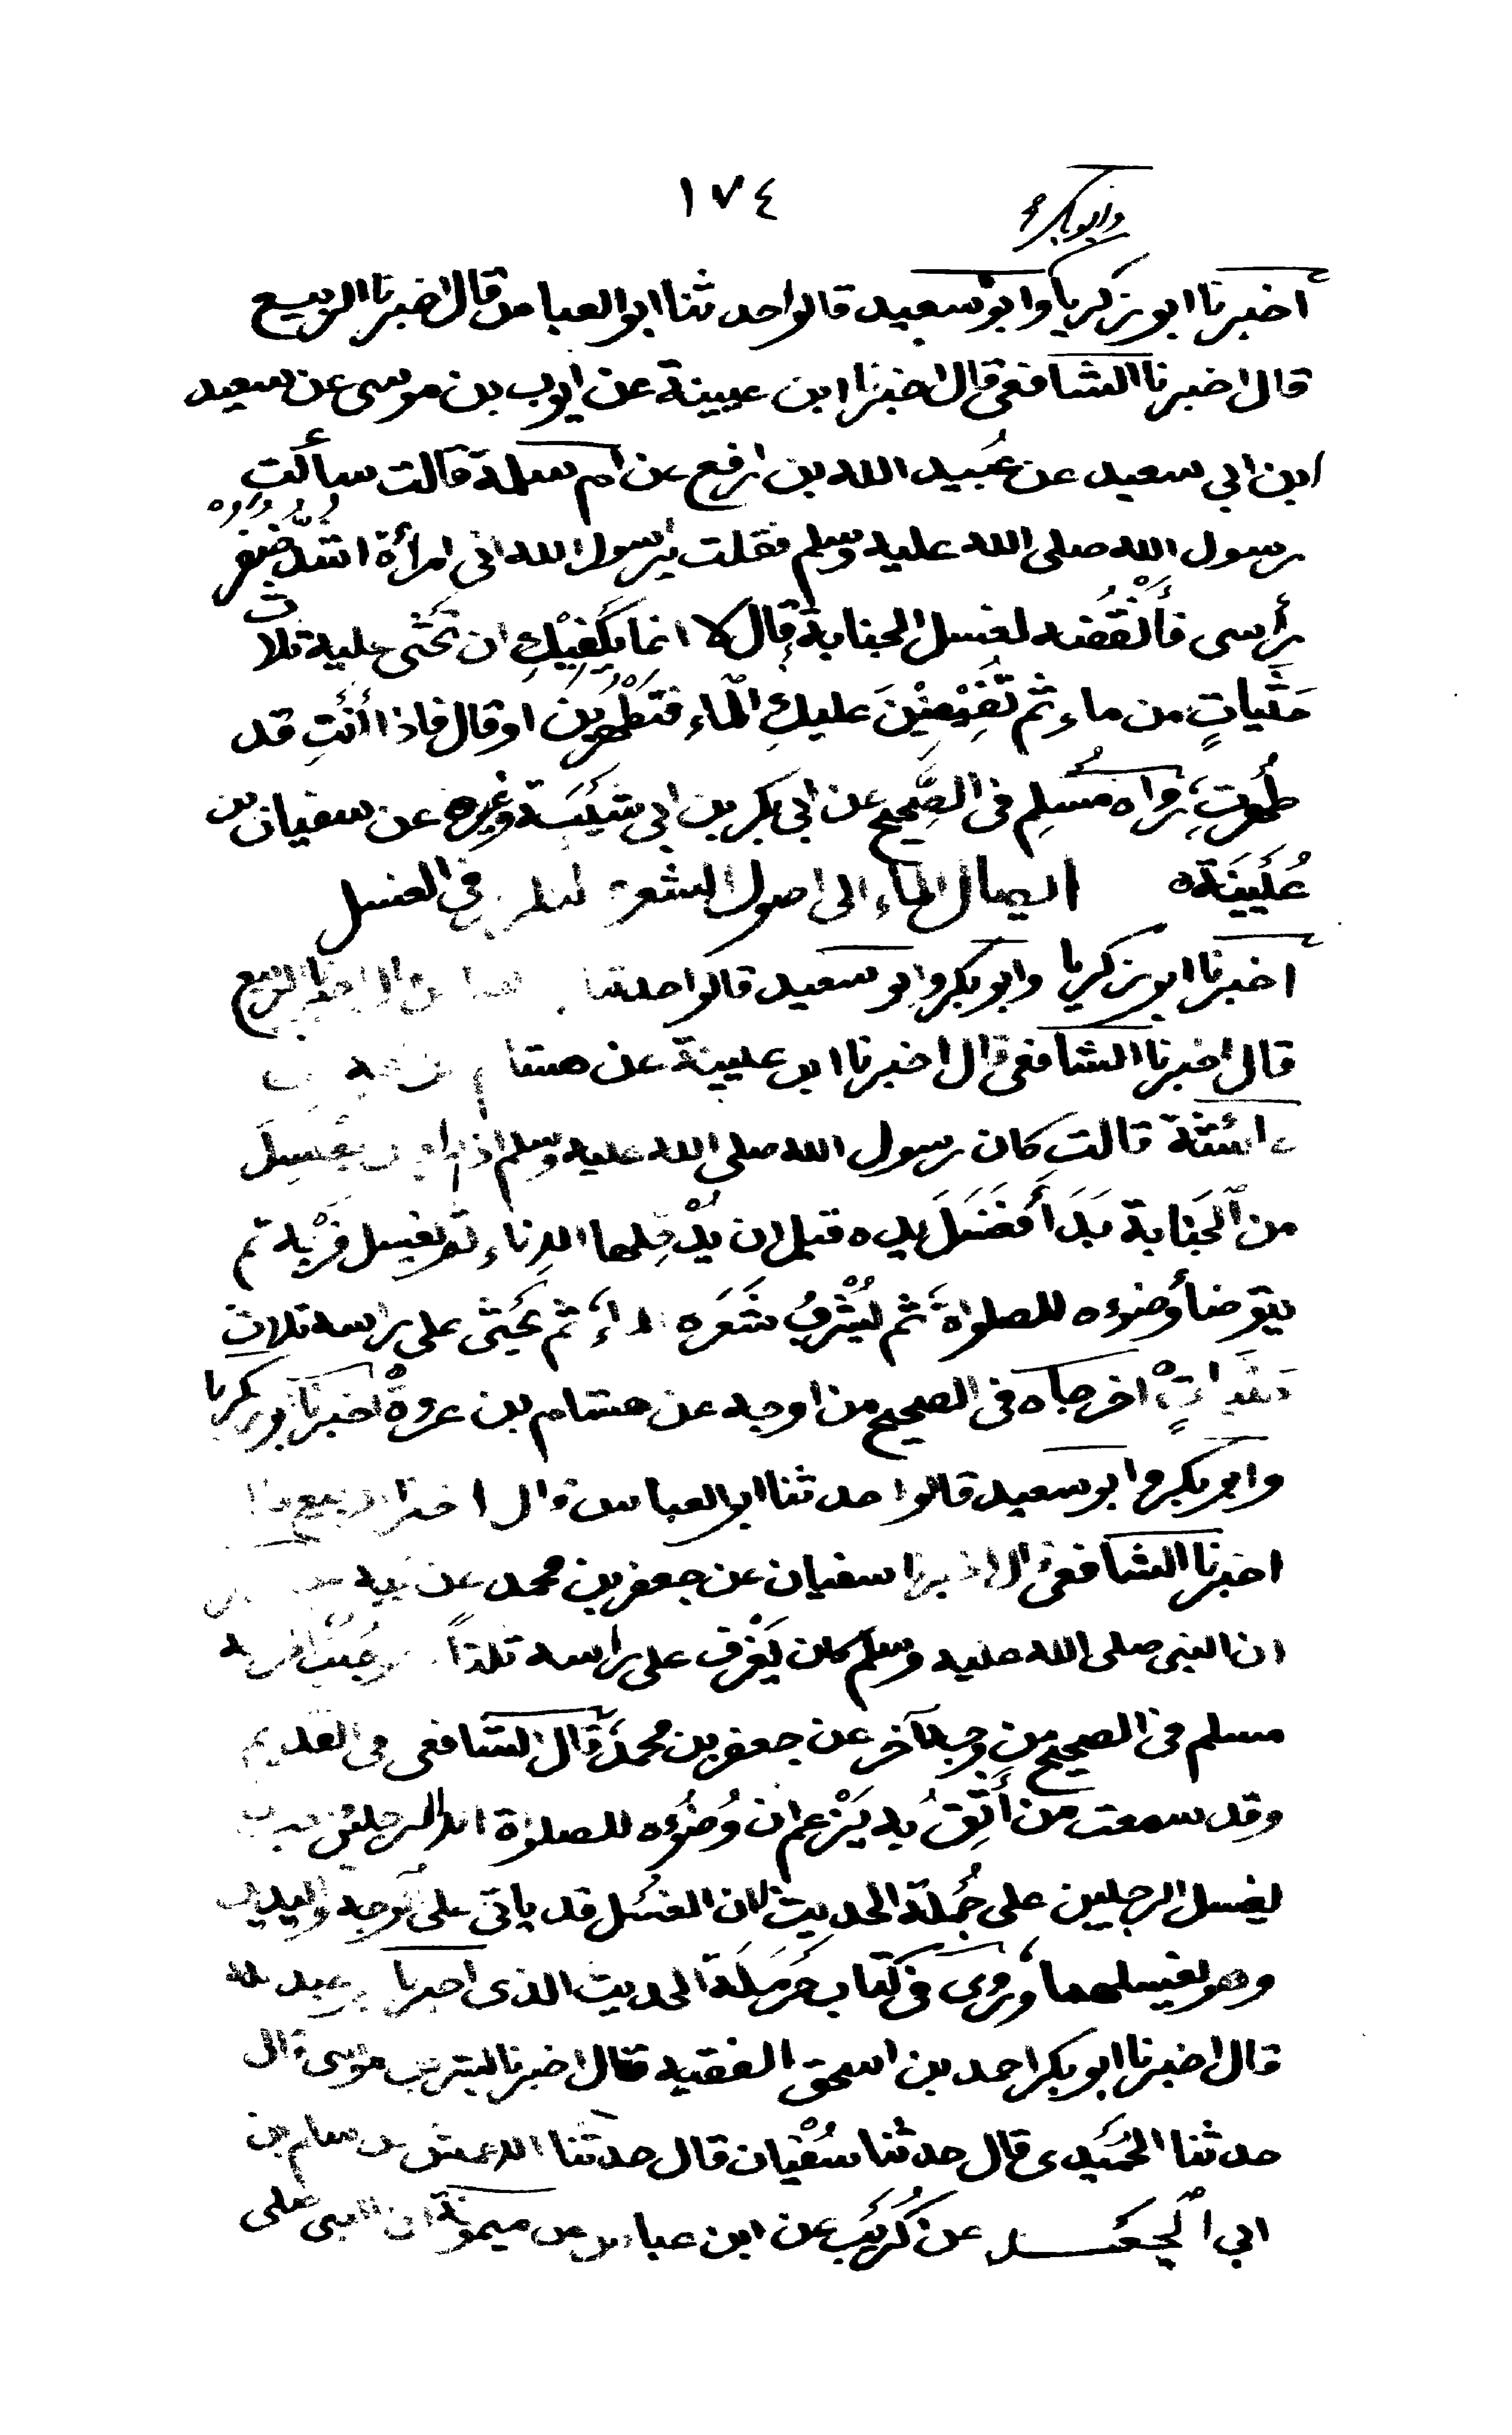 ١٧٤
وابو بكر
أخبرنا ابو زكريا وابو سعيد قالوا حدثنا ابو العباس قال اخبرنا الربيع
قال اخبرنا الشافعى قال اخبرنا ابن عيينة عن ايوب بن موسى عن سعيد
ابن ابي سعيد عن عُبيد الله بن ارفع عن ام سلمة قالت سألت
رسول الله صلى الله عليه وسلم فقلت يرسول الله انى امرأة اشدُّ ضُفُرَ
رأسى فأَنْقُضه لغسل الجنابة قال لا انما يَكفِيْكِ ان تَحْثى عليه ثلاث
حَثَياتٍ من ماء ثم تُفِيْضِيْنَ عليكِ الماء فتَطْهُرين او قال فاذا أنتِ قد
طَهُرتِ رواه مُسلِم فى الصَّحيح عن ابى بكر بن ابى شَيْبَة وغيره عن سفيان بن
عُيَيْنَة ه ايصال الماء الى اصول الشعر فى الغسل
أخبرنا ابو زكريا وابو بكر وابو سعيد قالوا حدثنا اخبرنا الربيع
قال اخبرنا الشافعى قال اخبرنا ابن عيينة عن هشام
عائشة قالت كان رسول الله صلى الله عليه وسلم اذا يغتسِلَ
من الجَنابة بَدَأ فغَسَلَ يده قبل ان يُدْخِلها الاناء ثم يغسل فَرْجه ثم
يتوضأ وضوءه للصلوٰة ثم يُشْرِبُ شَعَره الماء ثم يَحْثى على راسه ثلاث
حَثَياتٍ اخرجاه فى الصحيح من اوجه عن هشام بن عروة اخبرنا ابو زكريا
وابو بكر وابو سعيد قالوا حدثنا ابو العباس قال اخبرنا الربيع قال
اخبرنا الشافعى قال اخبرنا سفيان عن جعفر بن محمد عن ابيه
ان النبى صلى الله عليه وسلم كان يَغْرِف على راسه ثلاثاً جُنُب اخرجه
مسلم فى الصحيح من وجه آخر عن جعفر بن محمد قال الشافعى فى القديم
وقد سمعت من أَثِقُ به يَزْعم ان وُضُوءه للصلوٰة الرجلين
لغسل الرجلين على جُملَة الحديث لان الغُسْل قد ياتى على الوجه واليدين
وهو يغسلهما وروى فى كتاب حَرمَلَة الحديث الذى اخبرنا عبد الله
قال اخبرنا ابو بكر احمد بن اسحق الفقيه قال اخبرنا بشر بن موسى قال
حدثنا الحُمَيدى قال حدثنا سُفْيان قال حدثنا الاعمش عن سالم بن
ابي الجعد عن كُرَيْب عن ابن عباس عن ميمونة ان النبى صلى